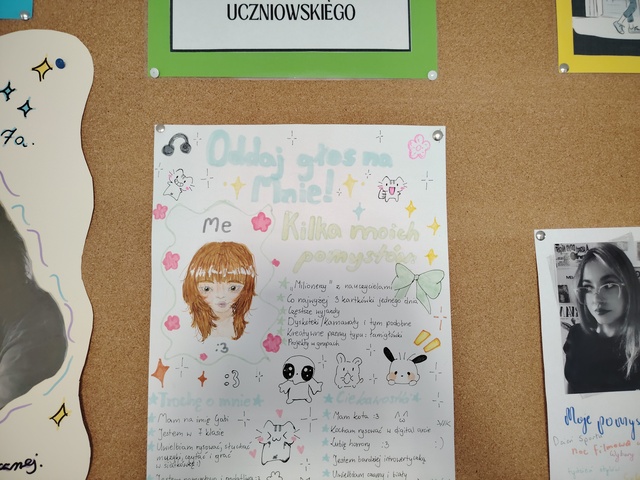 UCZNIOWSKIEGO
7a.
Oddaj głos na
Mnie!
Me
Kilka moich
pomysłów
„Milionerzy" z nauczycielami
Co najwyżej 3 kartkówki jednego dnia
Częstsze wyjazdy
Dyskoteki, karnawały i tym podobne
Kreatywne przerwy typu: łamigłówki
Projekty w grupach
:3
:3
Trochę o mnie
Mam na imię Gabi
Jestem w 7 klasie
Uwielbiam rysować, słuchać
muzyki, czytać i grać
w siatkówkę :)
Ciekawostki
Mam kota :3
Kocham rysować w digital arcie
Lubię horrory :3
Jestem bardziej introwertyczką
Uwielbiam czarny i biały
Moje pomys